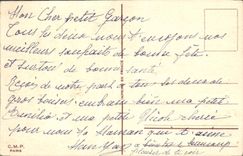 Mon Cher petit Garçon
Tous les deux nous t envoyons nos
meilleurs souhaits de bonne fête
et surtout de bonne santé
Reçois de notre part a tous les deux de
gros baisers, embrasse bien ma petite
et ma petite Nicole
pour nous ta Maman qui t aime
C.M.P.
PARIS